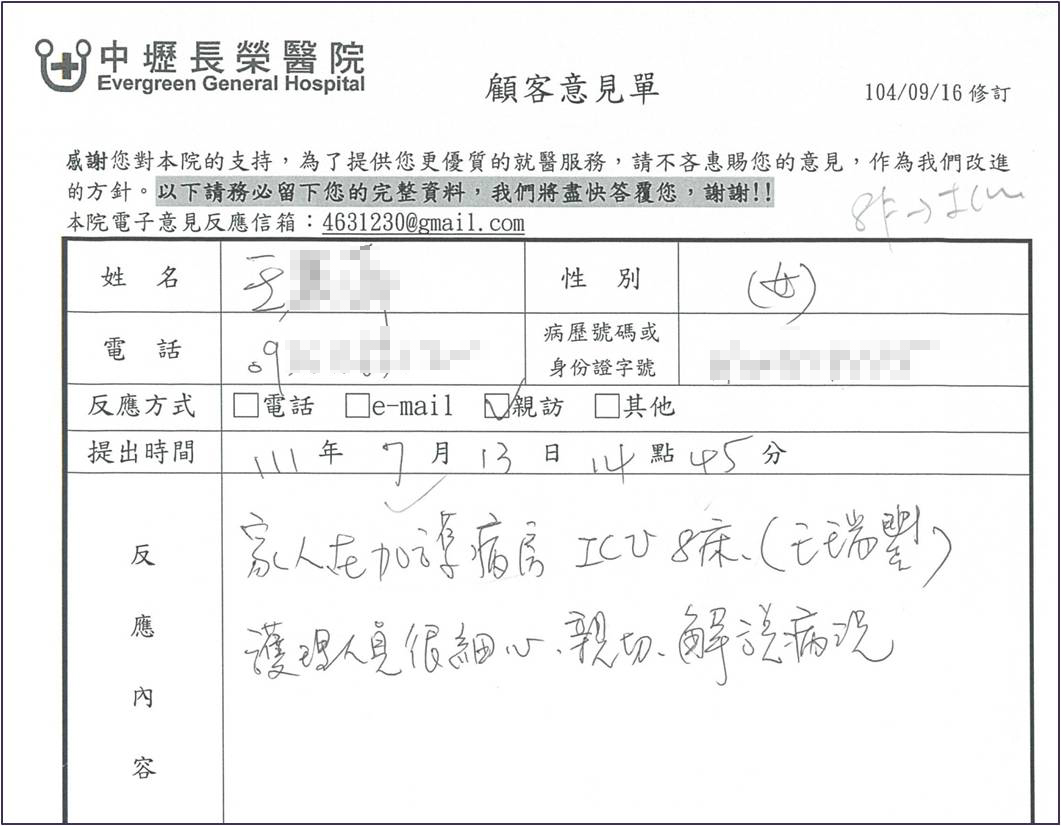 中壢長榮醫院
Evergreen General Hospital
顧客意見單
104/09/16修訂
感謝您對本院的支持，為了提供您更優質的就醫服務，請不吝惠賜您的意見，作為我們改進
的方針。以下請務必留下您的完整資料，我們將盡快答覆您，謝謝!!
本院電子意見反應信箱：4631230@gmail.com
姓 名 王 性 別 (女)
電 話 09 病歷號碼或
身份證字號
反應方式 □電話 □e-mail ☑親訪 □其他
提出時間 111 年 7 月 13 日 14 點 45 分
反應內容
家人在加護病房 ICU 8床、(王瑞豐)
護理人員很細心、親切、解說病況